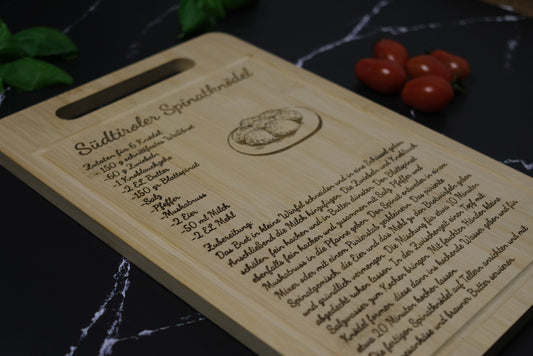 Südtiroler Spinatknödel
Zutaten für 6 Knödel
- 150 g schnittfestes Weißbrot
- 60 g Zwiebeln
- 1 Knoblauchzehe
- 2 EL Butter
- 150 gr Blattspinat
- Salz
- Pfeffer
- Muskatnuss
- 2 Eier
- 50 ml Milch
- 2 EL Mehl
Zubereitung:
Das Brot in kleine Würfel schneiden und in eine Schüssel geben.
Anschließend die Milch hinzufügen. Die Zwiebeln und Knoblauch
schälen, fein hacken und in Butter dünsten. Den Blattspinat
ebenfalls fein hacken und zusammen mit Salz, Pfeffer und
Muskatnuss in die Pfanne geben. Den Spinat einzeln in einem
Mixer oder mit einem Pürierstab zerkleinern. Das pürierte
Spinatgemisch, die Eier und das Mehl zu den Brotwürfeln geben
und gründlich vermengen. Die Mischung für etwa 10 Minuten
abgedeckt ruhen lassen. In der Zwischenzeit einen Topf mit
Salzwasser zum Kochen bringen. Mit feuchten Händen kleine
Knödel formen, diese dann ins kochende Wasser geben und für
etwa 20 Minuten kochen lassen.
Die fertigen Spinatknödel auf Tellern anrichten und mit
und brauner Butter servieren.